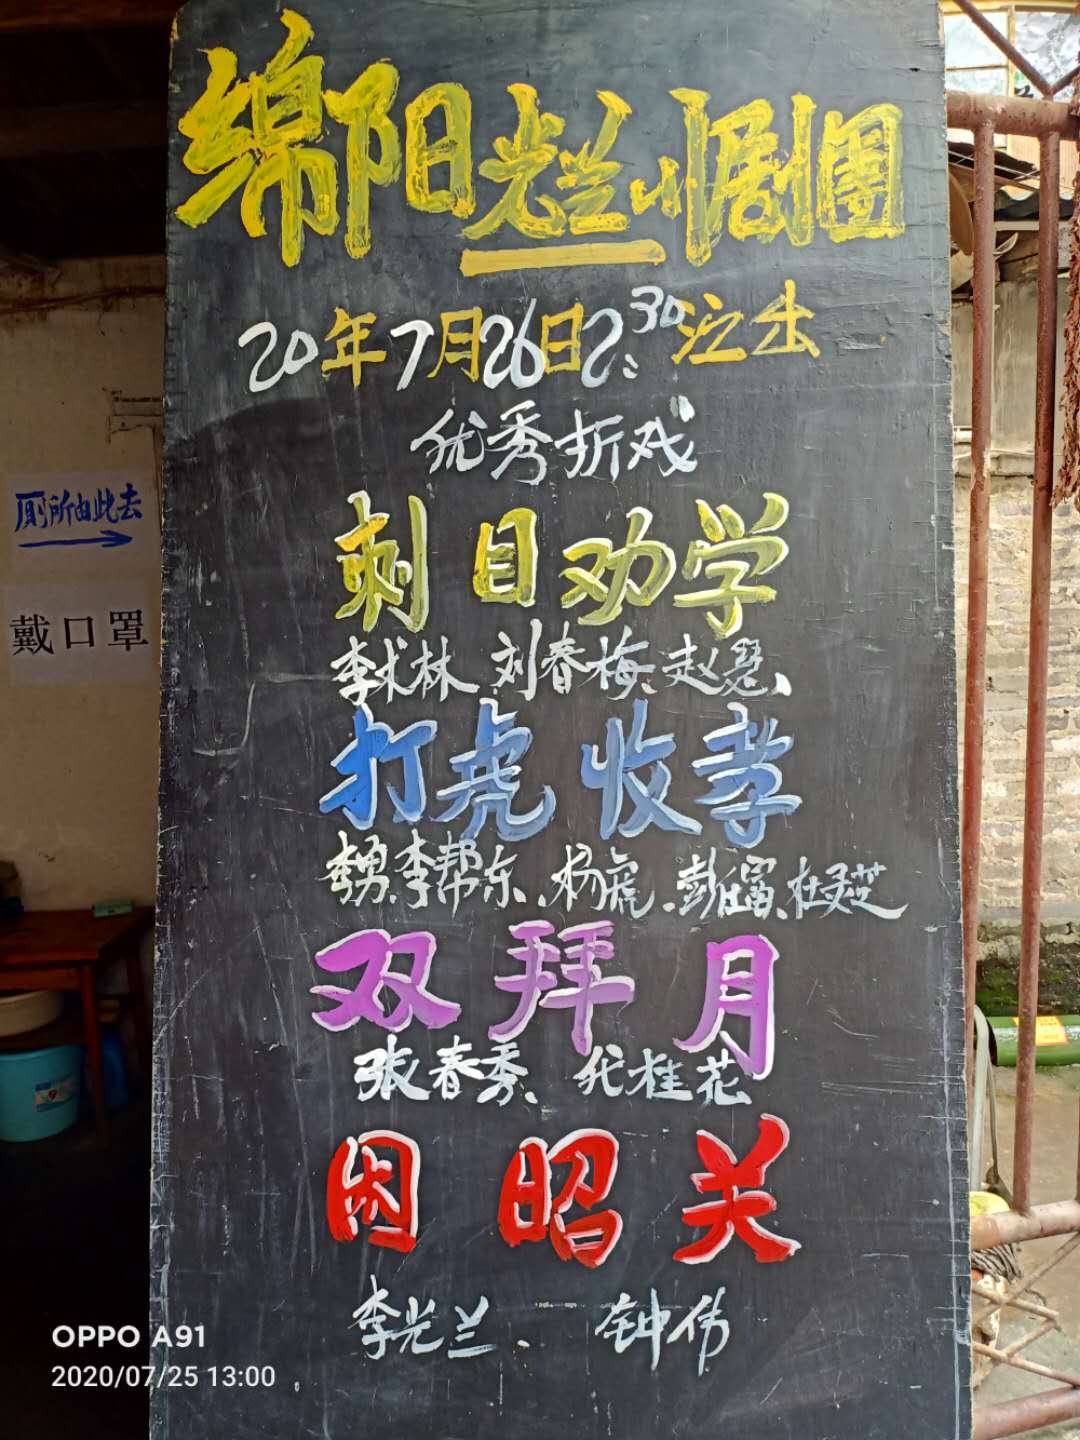 绵阳光兰川剧團
20年7月26日2:30泣出
优秀折戏
刺目劝学
李术林 刘春梅、赵慧、
打虎收孝
李勇、李帮东、杨虎、彭国富、杜灵芝
双拜月
张春秀、代桂花
困昭关
李光兰、钟伟
厕所由此去
戴口罩
OPPO A91
2020/07/25 13:00